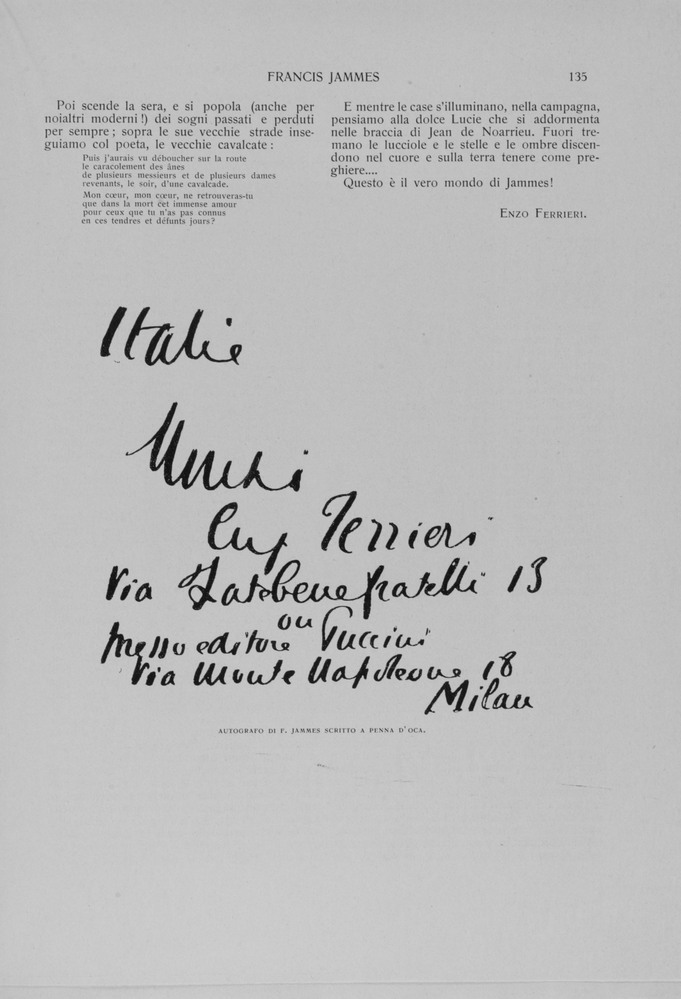 FRANCIS JAMMES
135
Poi scende la sera, e si popola (anche per
noialtri moderni !) dei sogni passati e perduti
per sempre ; sopra le sue vecchie strade inse-
guiamo col poeta, le vecchie cavalcate :
Puis j'aurais vu déboucher sur la route
le caracolement des ânes
de plusieurs messieurs et de plusieurs dames
revenants, le soir, d'une cavalcade.
Mon cœur, mon cœur, ne retrouveras-tu
que dans la mort cet immense amour
pour ceux que tu n'as pas connus
en ces tendres et défunts jours?
E mentre le case s'illuminano, nella campagna,
pensiamo alla dolce Lucie che si addormenta
nelle braccia di Jean de Noarrieu. Fuori tre-
mano le lucciole e le stelle e le ombre discen-
dono nel cuore e sulla terra tenere come pre-
ghiere....
Questo è il vero mondo di Jammes!
ENZO FERRIERI.
Italie
Ferrieri
Via Fatebenefratelli 13
ou
presso editore Puccini
Via Monte Napoleone 18
Milan
AUTOGRAFO DI F. JAMMES SCRITTO A PENNA D'OCA.